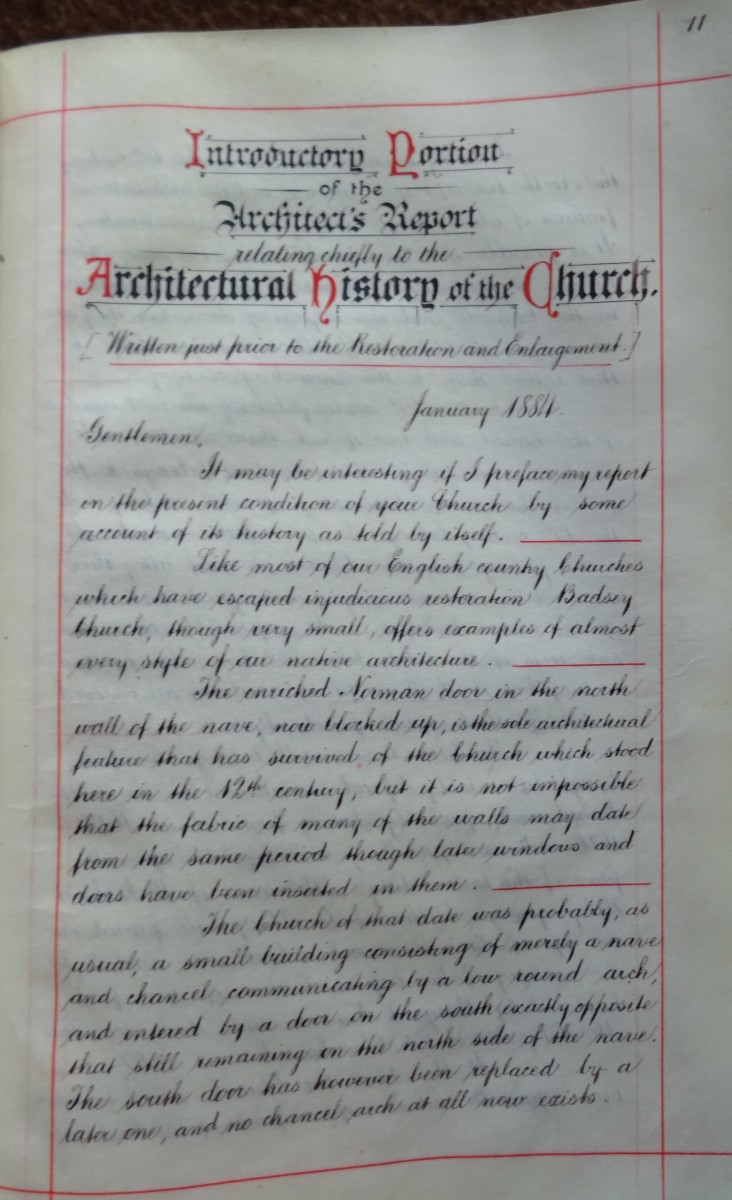 11
Introductory Portion
of the
Architect's Report
relating chiefly to the
Architectural History of the Church.
[Written just prior to the Restoration and Enlargement.]
January 1884.
Gentlemen,
It may be interesting if I preface my report
on the present condition of your Church by some
account of its history as told by itself.
Like most of our English country Churches
which have escaped injudicious restoration Badsey
Church, though very small, offers examples of almost
every style of our native architecture.
The enriched Norman door in the north
wall of the nave, now blocked up, is the sole architectural
feature that has survived of the Church which stood
here in the 12th century, but it is not impossible
that the fabric of many of the walls may date
from the same period though later windows and
doors have been inserted in them.
The Church of that date was probably, as
usual, a small building consisting of merely a nave
and chancel communicating by a low round arch,
and entered by a door on the south exactly opposite
that still remaining on the north side of the nave.
The south door has however been replaced by a
later one, and no chancel arch at all now exists.